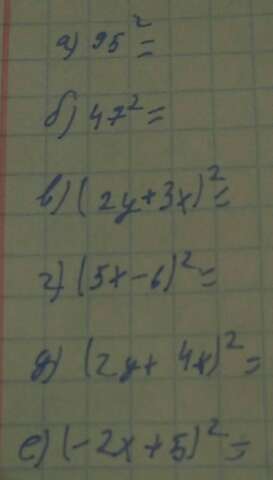 а) 95²=
б) 47²=
в) (2y+3x)²=
г) (5x-6)²=
д) (2y+4x)²=
е) (-2x+5)²=